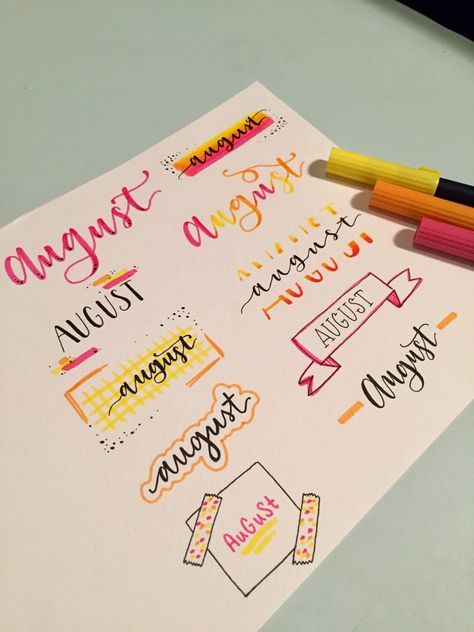 august
august
august
AUGUST
AUGUST
august
AUGUST
august
august
august
AuGuSt